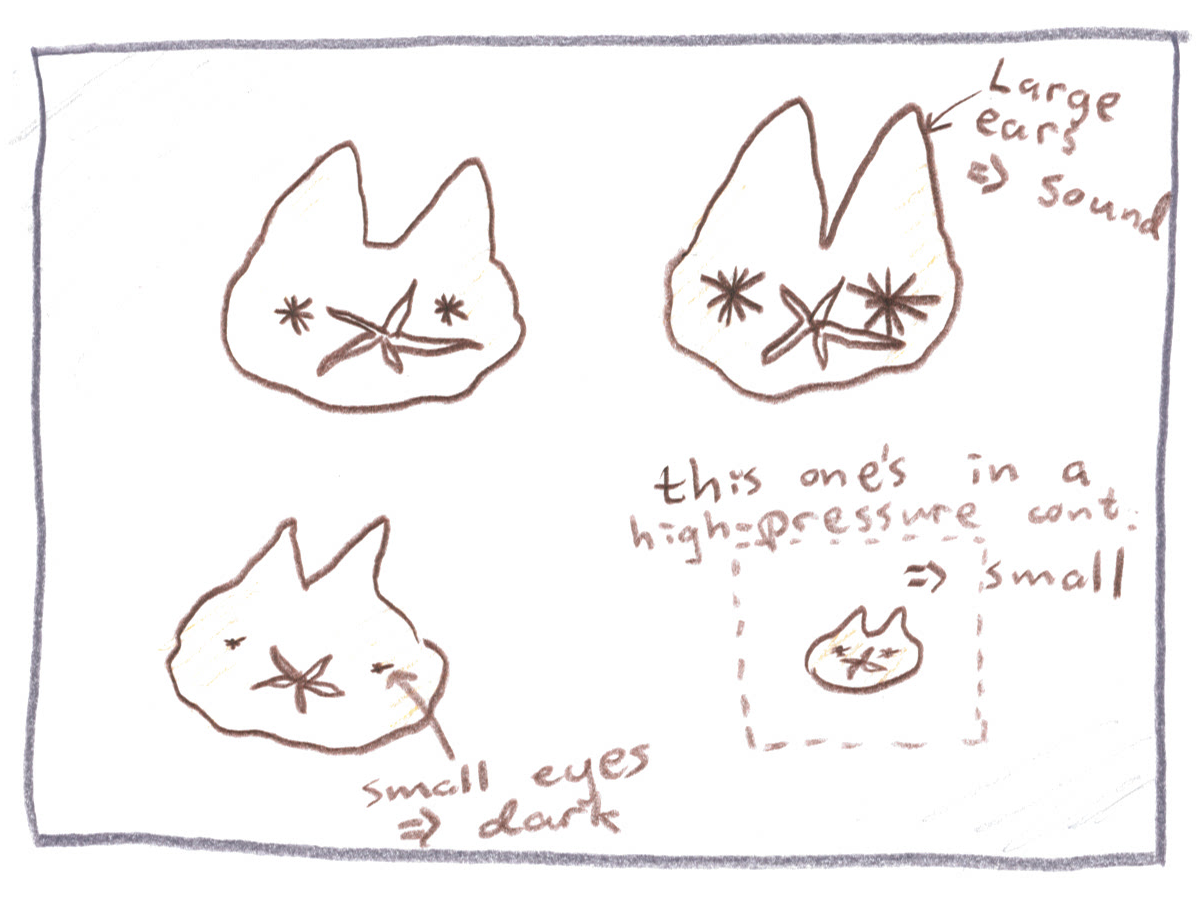 Large
ears
=> sound
this one's in a
high-pressure cont.
=> small
small eyes
=> dark